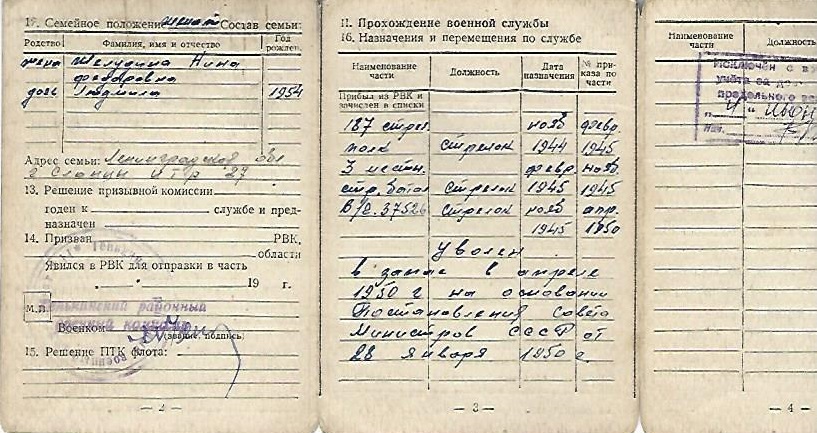 12. Семейное положение женат Состав семьи:
Родство
Фамилия, имя и отчество
Год рожден.
жена Желудина Нина
федоровна
дочь Людмила 1954
Адрес семьи: Ленинградская обл
г Сланцы
13. Решение призывной комиссии
годен к службе и пред-
назначен
14. Призван РВК,
области
Явился в РВК для отправки в часть
19 г.
М.П.
районный
Военком
(звание, подпись)
15. Решение ПТК флота:
— 2 —
II. Прохождение военной службы
16. Назначения и перемещения по службе
Наименование части
Должность
Дата назначения
№ приказа по части
Прибыл из РВК и
зачислен в списки
187 стрел. нояб февр.
полк стрелок 1944 1945
3 местн. февр. нояб.
стр. батал стрелок 1945 1945
В/с. 37526 стрелок нояб апр.
1945 1950
Уволен
в запас в апреле
1950 г на основании
Постановления Совета
Министров СССР от
28 января 1950 г.
— 3 —
Наименование части
Должность
Исключен с
учёта за
предельного
— 4 —